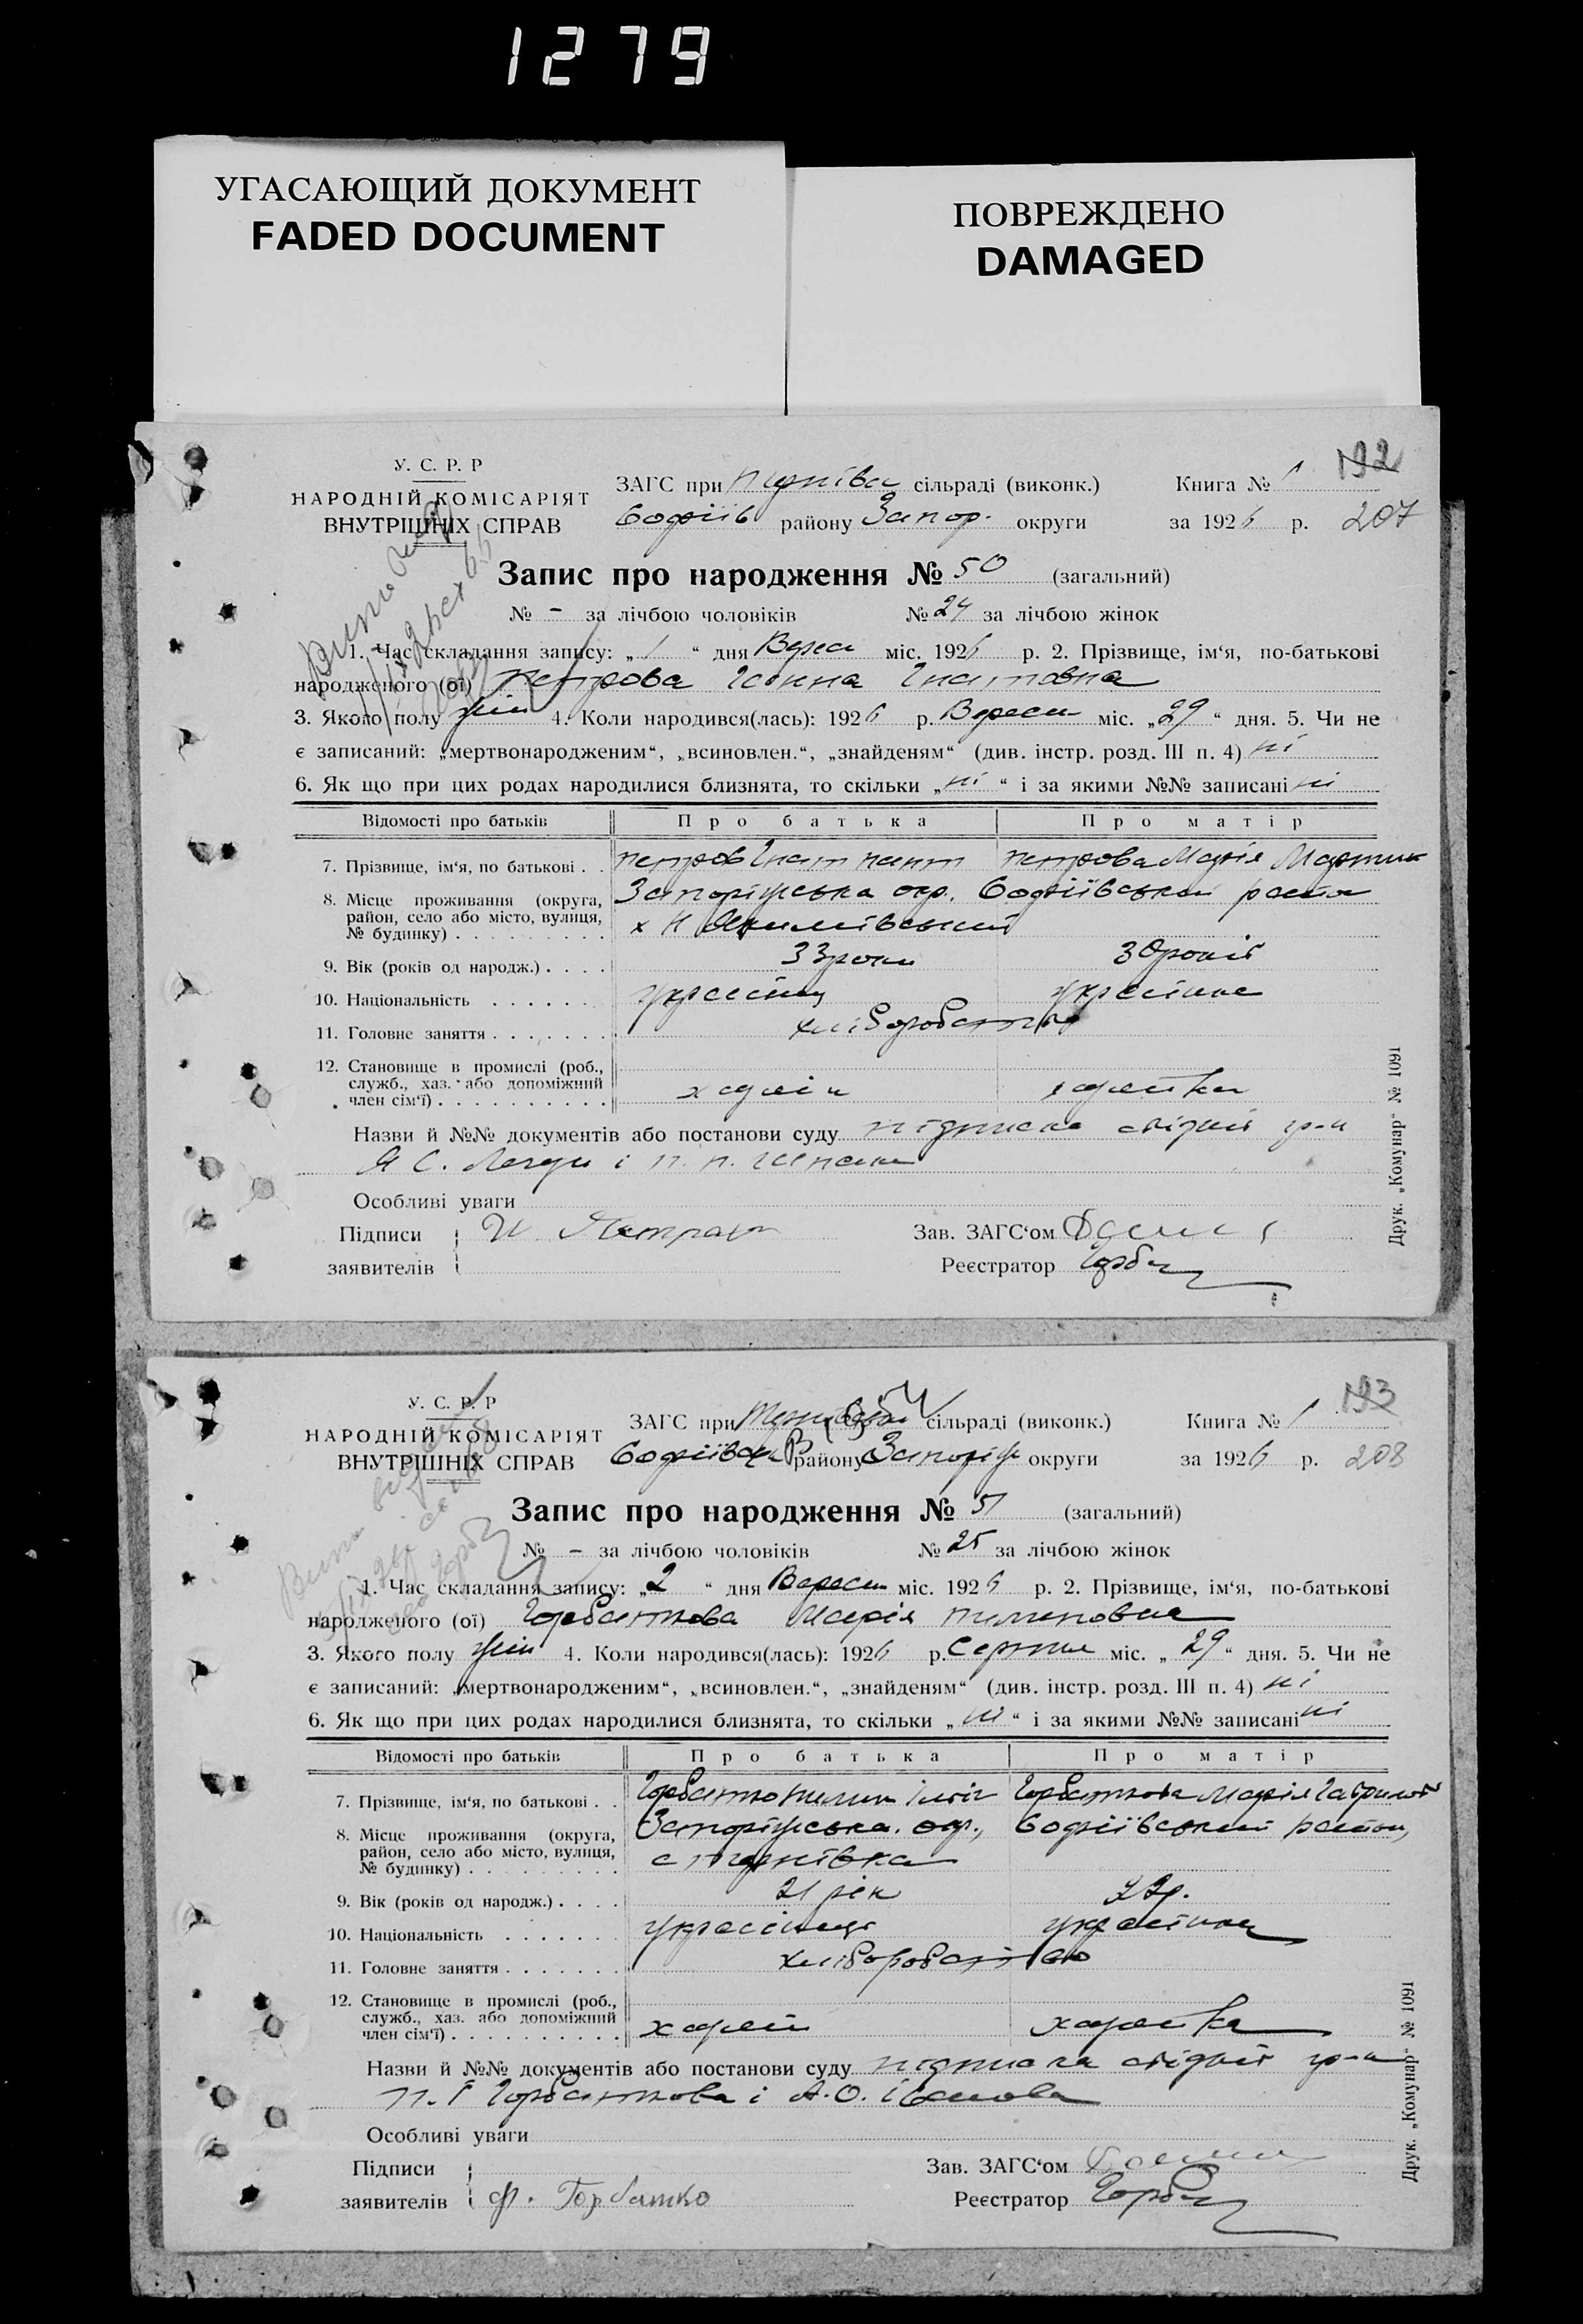 1279
УГАСАЮЩИЙ ДОКУМЕНТ
FADED DOCUMENT
ПОВРЕЖДЕНО
DAMAGED
У. С. Р. Р
НАРОДНІЙ КОМІСАРІЯТ
ВНУТРІШНІХ СПРАВ
ЗАГС при сільраді (виконк.)
Софіїв району Запор. округи
Книга № 1
192
за 1926 р. 207
Запис про народження № 50 (загальний)
№ - за лічбою чоловіків № 24 за лічбою жінок
1. Час складання запису: „ 1 “ дня Верес міс. 1926 р. 2. Прізвище, ім‘я, по-батькові
народженого (ої) Петрова Ганна Гнатовна
3. Якого полу жін 4. Коли народився(лась): 1926 р. Вересн міс. „29“ дня. 5. Чи не
є записаний: „мертвонародженим“, „всиновлен.“, „знайденям“ (див. інстр. розд. III п. 4) ні
6. Як що при цих родах народилися близнята, то скільки „ ні “ і за якими №№ записані ні
Відомості про батьків Про батька Про матір
7. Прізвище, ім‘я, по батькові . . Петров Гнат Петрова Марія Мартин
8. Місце проживання (округа, район, село або місто, вулиця, № будинку) . . . . . . . . . Запоріжська окр. Софіївський район
х Н
9. Вік (років од народж.) . . . . 33 роки 30 років
10. Національність . . . . . . українец українка
11. Головне заняття . . . . . . . хліборобство
12. Становище в промислі (роб., служб., хаз. або допоміжний член сім‘ї) . . . . . . . . . . хазяін хазяйка
Назви й №№ документів або постанови суду підписка свідків гр-н
Я С. і П. П.
Особливі уваги
Підписи
заявителів
Зав. ЗАГС‘ом
Реєстратор Горб
Друк. „Комунар“ № 1091
У. С. Р. Р
НАРОДНІЙ КОМІСАРІЯТ
ВНУТРІШНІХ СПРАВ
ЗАГС при сільраді (виконк.)
Софіївськ району Запоріж округи
Книга № 1
193
за 1926 р. 208
Запис про народження № 51 (загальний)
№ - за лічбою чоловіків № 25 за лічбою жінок
1. Час складання запису: „2 “ дня Вересн міс. 1926 р. 2. Прізвище, ім‘я, по-батькові
народженого (ої) Горбаткова Марія Пилиповна
3. Якого полу жін 4. Коли народився(лась): 1926 р. Серпня міс. „ 29 “ дня. 5. Чи не
є записаний: „мертвонародженим“, „всиновлен.“, „знайденям“ (див. інстр. розд. III п. 4) ні
6. Як що при цих родах народилися близнята, то скільки „ ні “ і за якими №№ записані ні
Відомості про батьків Про батька Про матір
7. Прізвище, ім‘я, по батькові . . Горбатко Пилип Горбаткова Марія Гаврилов
8. Місце проживання (округа, район, село або місто, вулиця, № будинку) . . . . . . . . . Запоріжська. окр., Софіївський район,
с
9. Вік (років од народж.) . . . . 21 рік 22 р.
10. Національність . . . . . . . українець українка
11. Головне заняття . . . . . . . хліборобство
12. Становище в промислі (роб., служб., хаз. або допоміжний член сім‘ї) . . . . . . . . . . хазяїн хазяйка
Назви й №№ документів або постанови суду підписка свідків гр-н
П. Г Горбаткова і А. О. Іванова
Особливі уваги
Підписи
заявителів ф. Горбатко
Зав. ЗАГС‘ом
Реєстратор Горб
Друк. „Комунар“ № 1091